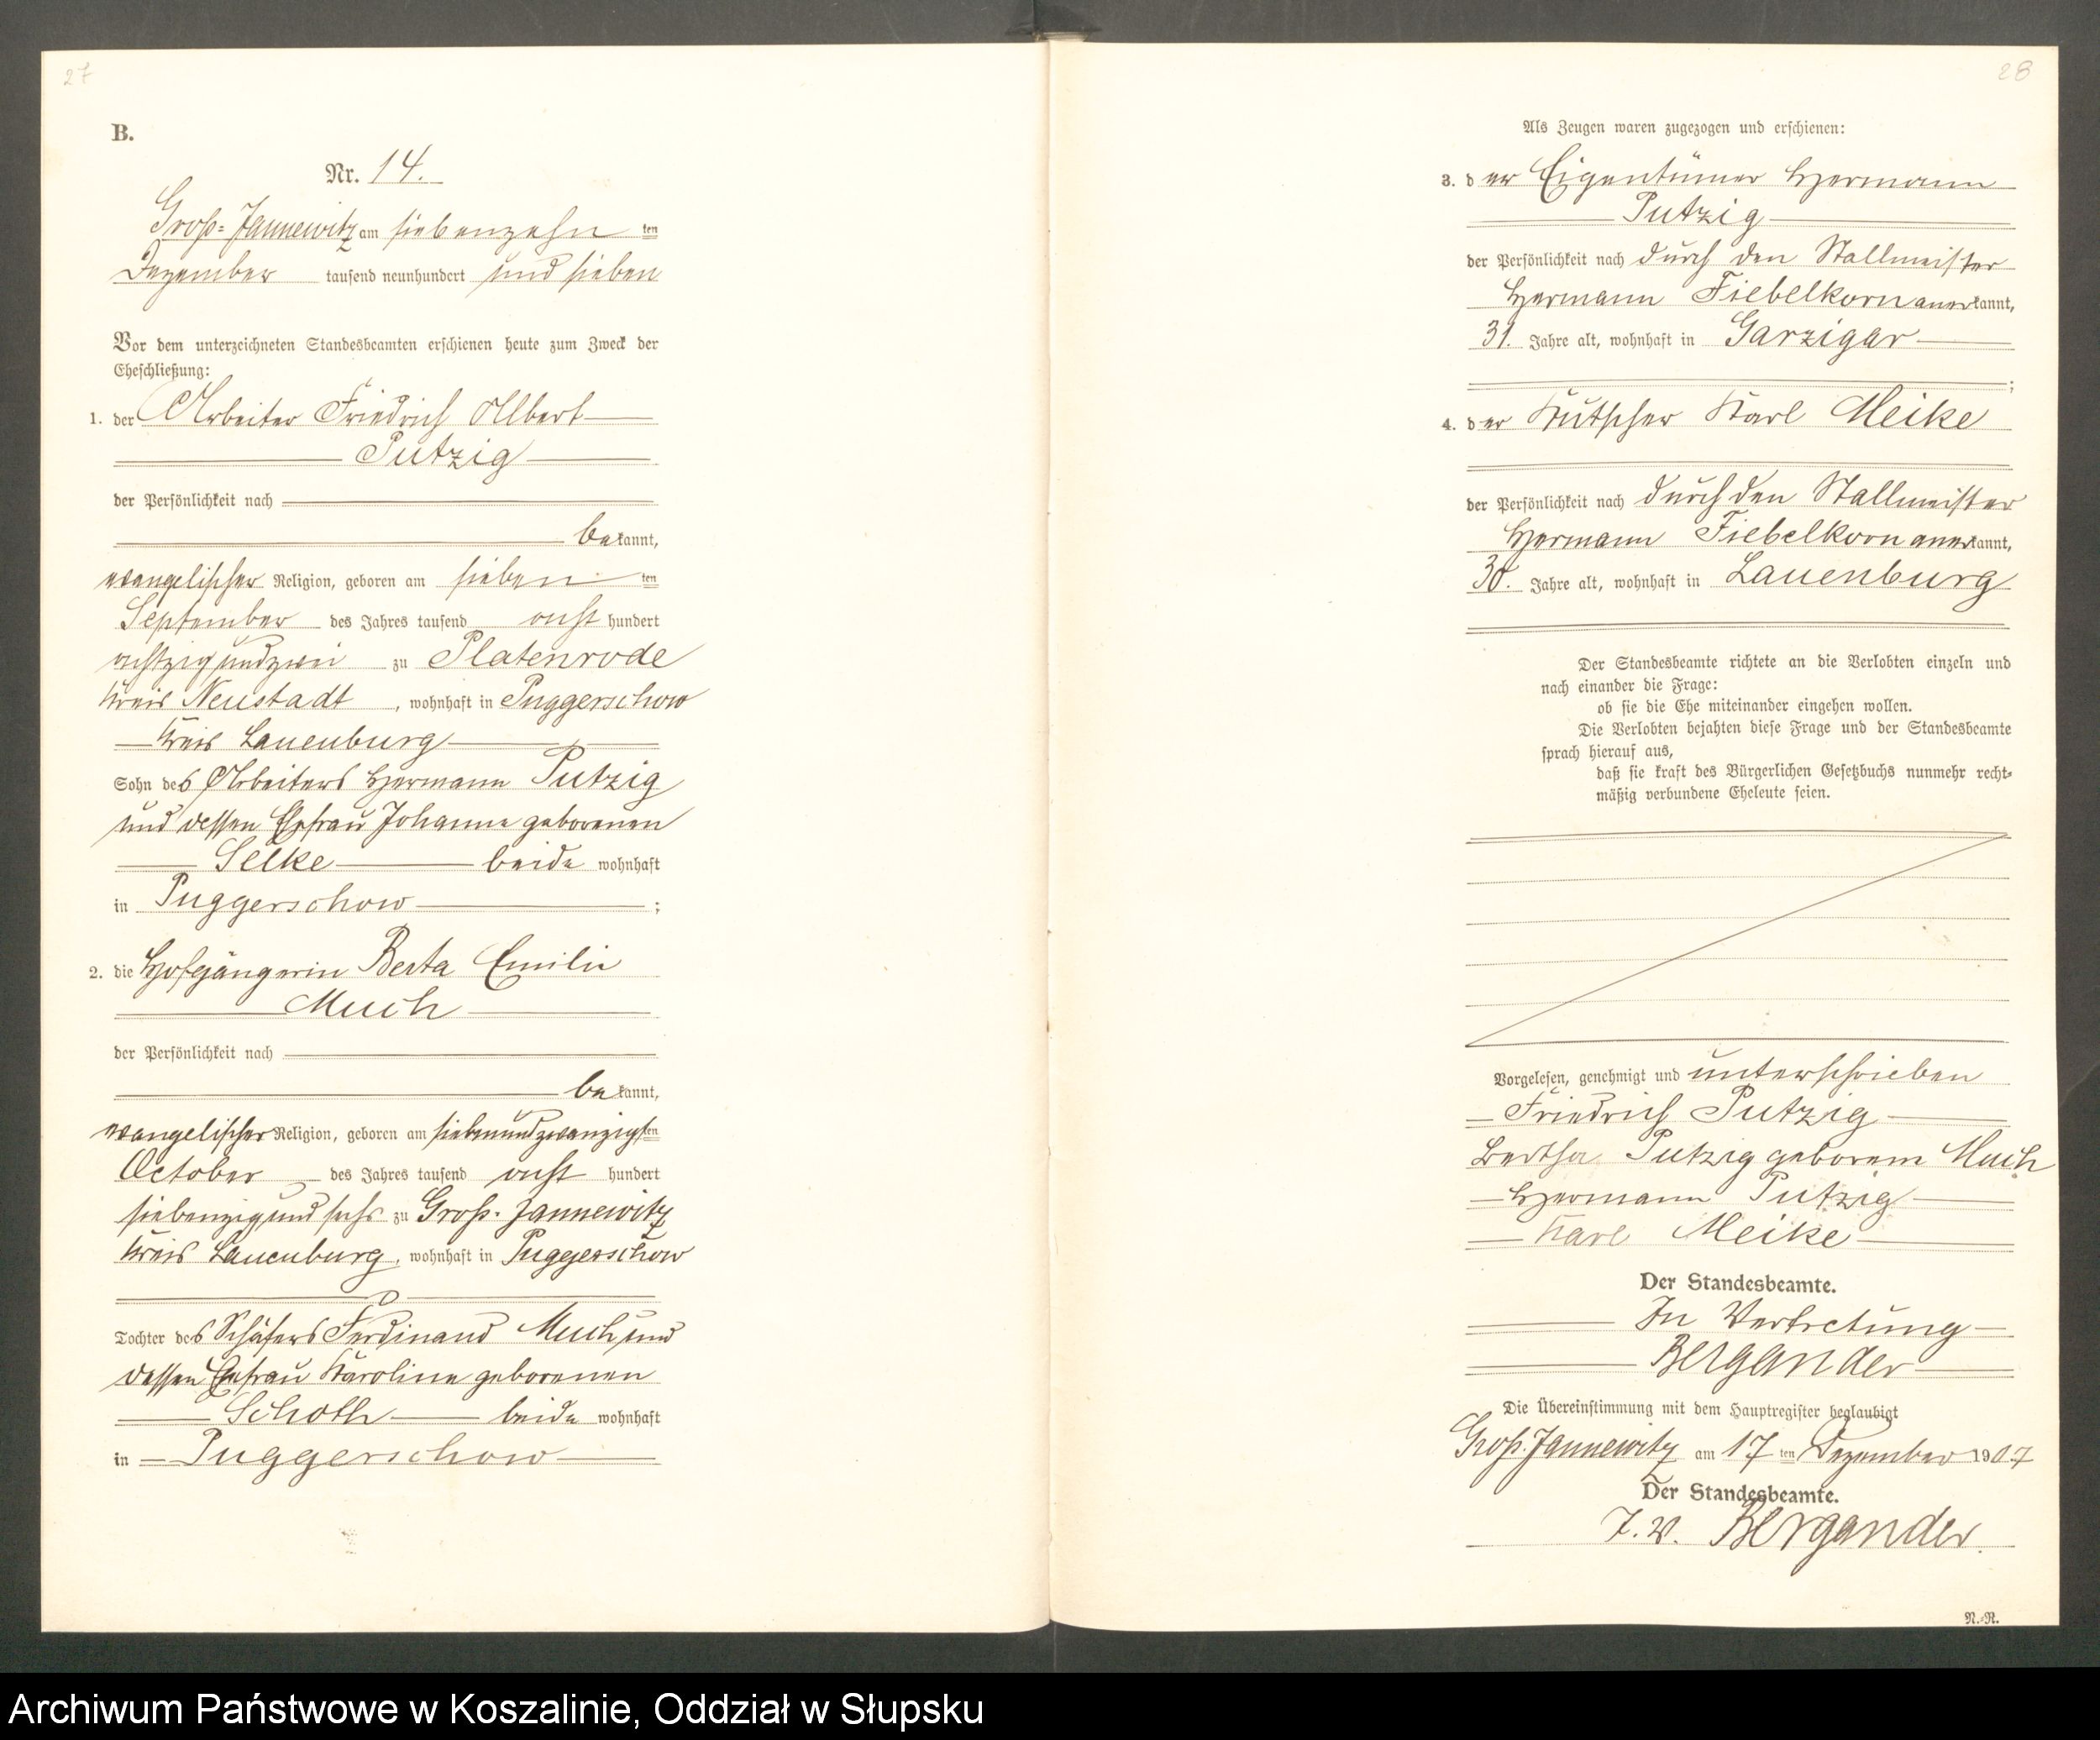 27
B.
Nr. 14.
Groß-Jannewitz am siebenzehn ten
Dezember tausend neunhundert und sieben
Vor dem unterzeichneten Standesbeamten erschienen heute zum Zweck der
Eheschließung:
1. der Arbeiter Friedrich Albert
Putzig
der Persönlichkeit nach
bekannt,
evangelischer Religion, geboren am sieben ten
September des Jahres tausend acht hundert
achtzig und zwei zu Platenrode
Kreis Neustadt, wohnhaft in Puggerschow
Kreis Lauenburg
Sohn des Arbeiters Hermann Putzig
und dessen Ehefrau Johanna geborenen
Selke beide wohnhaft
in Puggerschow;
2. die Hofgängerin Berta Emilie
Much
der Persönlichkeit nach
bekannt,
evangelischer Religion, geboren am siebenundzwanzigsten
October des Jahres tausend acht hundert
siebenzig und sechs zu Groß-Jannewitz
Kreis Lauenburg, wohnhaft in Puggerschow
Tochter des Schäfers Ferdinand Much und
dessen Ehefrau Karoline geborenen
Schoth beide wohnhaft
in Puggerschow
28
Als Zeugen waren zugezogen und erschienen:
3. der Eigentümer Hermann
Putzig
der Persönlichkeit nach durch den Stallmeister
Hermann Fiebelkorn anerkannt,
31. Jahre alt, wohnhaft in Garzigar
;
4. der Kutscher Karl Meike
der Persönlichkeit nach durch den Stallmeister
Hermann Fiebelkorn anerkannt,
30. Jahre alt, wohnhaft in Lauenburg
Der Standesbeamte richtete an die Verlobten einzeln und
nach einander die Frage:
ob sie die Ehe miteinander eingehen wollen.
Die Verlobten bejahten diese Frage und der Standesbeamte
sprach hierauf aus,
daß sie kraft des Bürgerlichen Gesetzbuchs nunmehr recht-
mäßig verbundene Eheleute seien.
Vorgelesen, genehmigt und unterschrieben
Friedrich Putzig
Bertha Putzig geborene Much
Hermann Putzig
Karl Meike
Der Standesbeamte.
In Vertretung
Bergander
Die Übereinstimmung mit dem Hauptregister beglaubigt
Groß-Jannewitz am 17 ten Dezember 1907
Der Standesbeamte.
I. V. Bergander.
N.-R.
Archiwum Państwowe w Koszalinie, Oddział w Słupsku